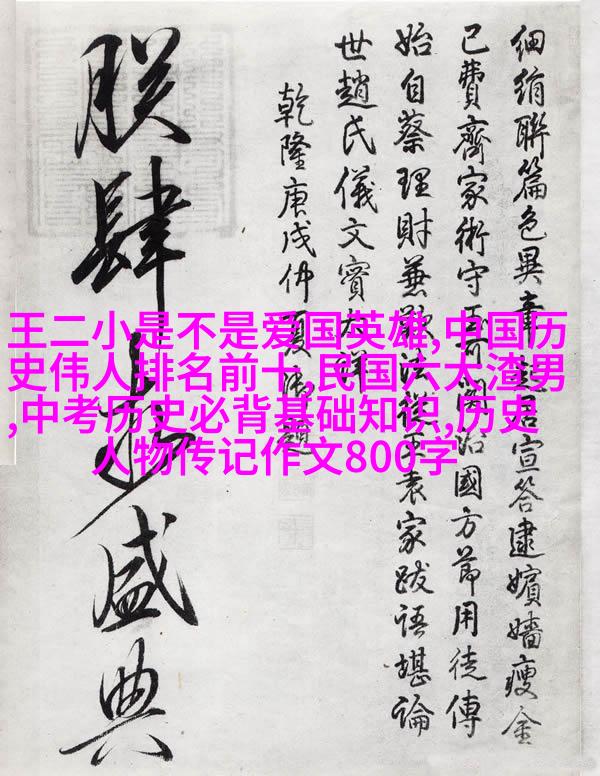 細絹聯篇色異章宣答逮嬪嬙瘦金
已費齊家術守臣治國方節用徒傳
始自蔡理財兼法家跋語堪論
世趙氏儀文實太詳
乾隆庚戌仲夏御題
朕肆盛典
王二小是不是爱国英雄,中国历
史伟人排名前十,民国六大渣男
,中考历史必背基础知识,历史
人物传记作文800字